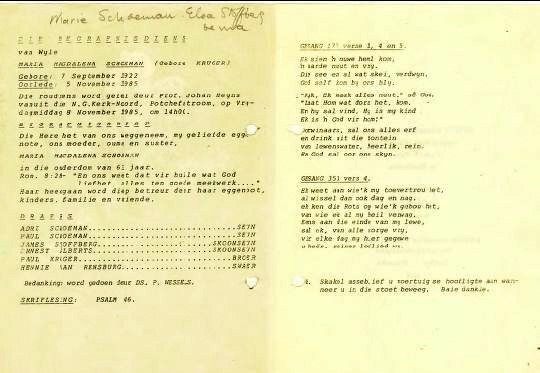 Marie Schoeman - Elsa Stoffberg
DIE BEGRAFNISDIENS
van Wyle
MARIA MAGDALENA SCHOEMAN (Gebore KRUGER)
Gebore: 7 September 1922
Oorlede: 5 November 1985
Die roudiens word gelei deur Prof. Johan Heyns
vanuit die N.G.Kerk-Noord, Potchefstroom, op Vry-
dagmiddag 8 November 1985, om 14h00.
Die Here het van ons weggeneem, my geliefde egge-
note, ons moeder, ouma en suster,
MARIA MAGDALENA SCHOEMAN
in die ouderdom van 63 jaar.
Rom. 8:28- "En ons weet dat vir hulle wat God
liefhet, alles ten goede meewerk...."
Haar heengaan word diep betreur deur haar eggenoot,
kinders, familie en vriende.
DRAERS
ADRI SCHOEMAN SEUN
PAUL SCHOEMAN SEUN
JAMES STOFFBERG SKOONSEUN
ERNEST ALBERTS SKOONSEUN
PAUL KRUGER BROER
HENNIE VAN RENSBURG SWAER
Bedanking: word gedoen deur DS. P. WESSELS.
SKRIFLESING: PSALM 46.
GESANG verse 1, 4 en 5.
Ek sien 'n nuwe hemel kom,
'n aarde nuut en vry.
Die see en al wat skei, verdwyn,
God self kom by ons bly.
"Kyk, Ek maak alles nuut," sê God,
"Laat hom wat dors het, kom.
En hy sal vind, Hy is my kind
Ek is 'n God vir hom!"
Oorwinnaars, sal ons alles erf
en drink uit die fontein
van lewenswater, heerlik, rein.
En God sal oor ons skyn.
GESANG 351 vers 4.
Ek weet aan wie'k my toevertrou het,
al wissel dan ook dag en nag.
ek ken die Rots op wie'k gebou het,
van wie ek al my heil verwag.
Eens aan die einde van my lewe,
sal ek, van alle sorge vry,
vir elke dag my hier gegewe
Skakel asseblief u voertuig se hoofligte aan wan-
neer u in die stoet beweeg. Baie dankie.